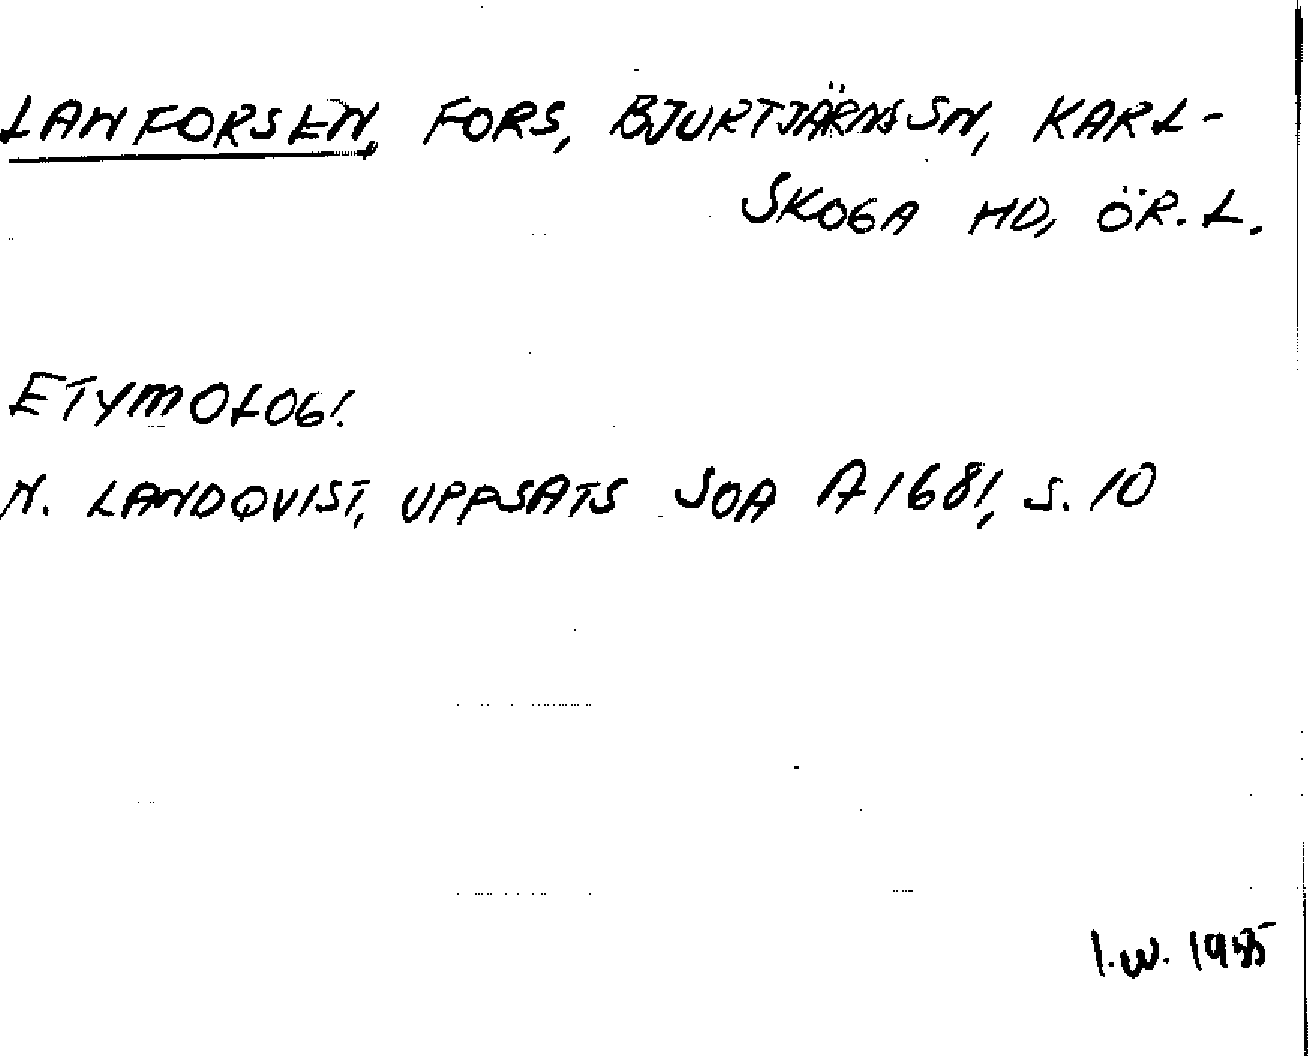 LANFORSEN, FORS, BJURTJÄRNS SN, KARL-
SKOGA HD, ÖR. L.
ETYMOLOGI.
N. LANDQVIST, UPPSATS SOA A1681, S. 10
I.W. 1985